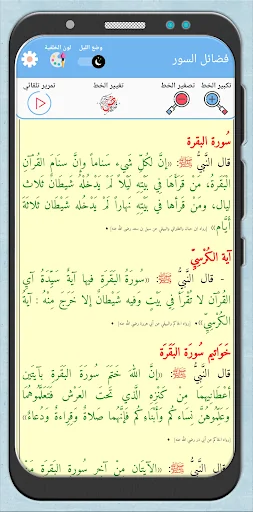 فضائل السور
وضع الليل
لون الخلفية
تكبير الخط
تصغير الخط
تغيير الخط
تمرير تلقائي
سُورة البقرة
قال النَّبِيُّ ﷺ: «إنَّ لكُلِّ شيءٍ سَناماً وإنَّ سَنامَ القُرآنِ
البَقَرةُ، مَنْ قَرَأَها في بَيْتِهِ لَيْلاً لَمْ يَدْخُلْهُ شَيطَانٌ ثَلاثَ
ليالٍ، ومَنْ قَرأَها في بَيْتِهِ نَهاراً لَمْ يَدْخُلْهُ شَيطَانٌ ثَلاثَةَ
أيَّام»
آية الكُرْسِيِّ
- قال النَّبيُّ ﷺ: «سُورَةُ البَقَرَةِ فيها آيةٌ سَيِّدَةُ آيِ
القُرآنِ لا تُقْرَأُ في بَيْتٍ وفيهِ شَيطَانٌ إلا خَرَجَ مِنْهُ: آيَةُ
الكُرْسِيِّ»
خَواتيم سُورَة البَقَرَة
- قال النَّبيُّ ﷺ: «إنَّ اللهَ خَتَمَ سُورَةَ البَقَرةِ بآيَتَينِ
أَعْطانِيهِما مِنْ كَنْزِهِ الَّذي تَحتَ العَرْشِ فَتَعَلَّمُوهُما
وعَلِّمُوهُنَّ نِساءَكُم وأَبْناءَكُم فإنَّهُما صَلاةٌ وقِراءَةٌ ودُعاءٌ»
- قال النَّبيُّ ﷺ: «الآيَتان مِنْ آخِرِ سُورَةِ البَقَرةِ